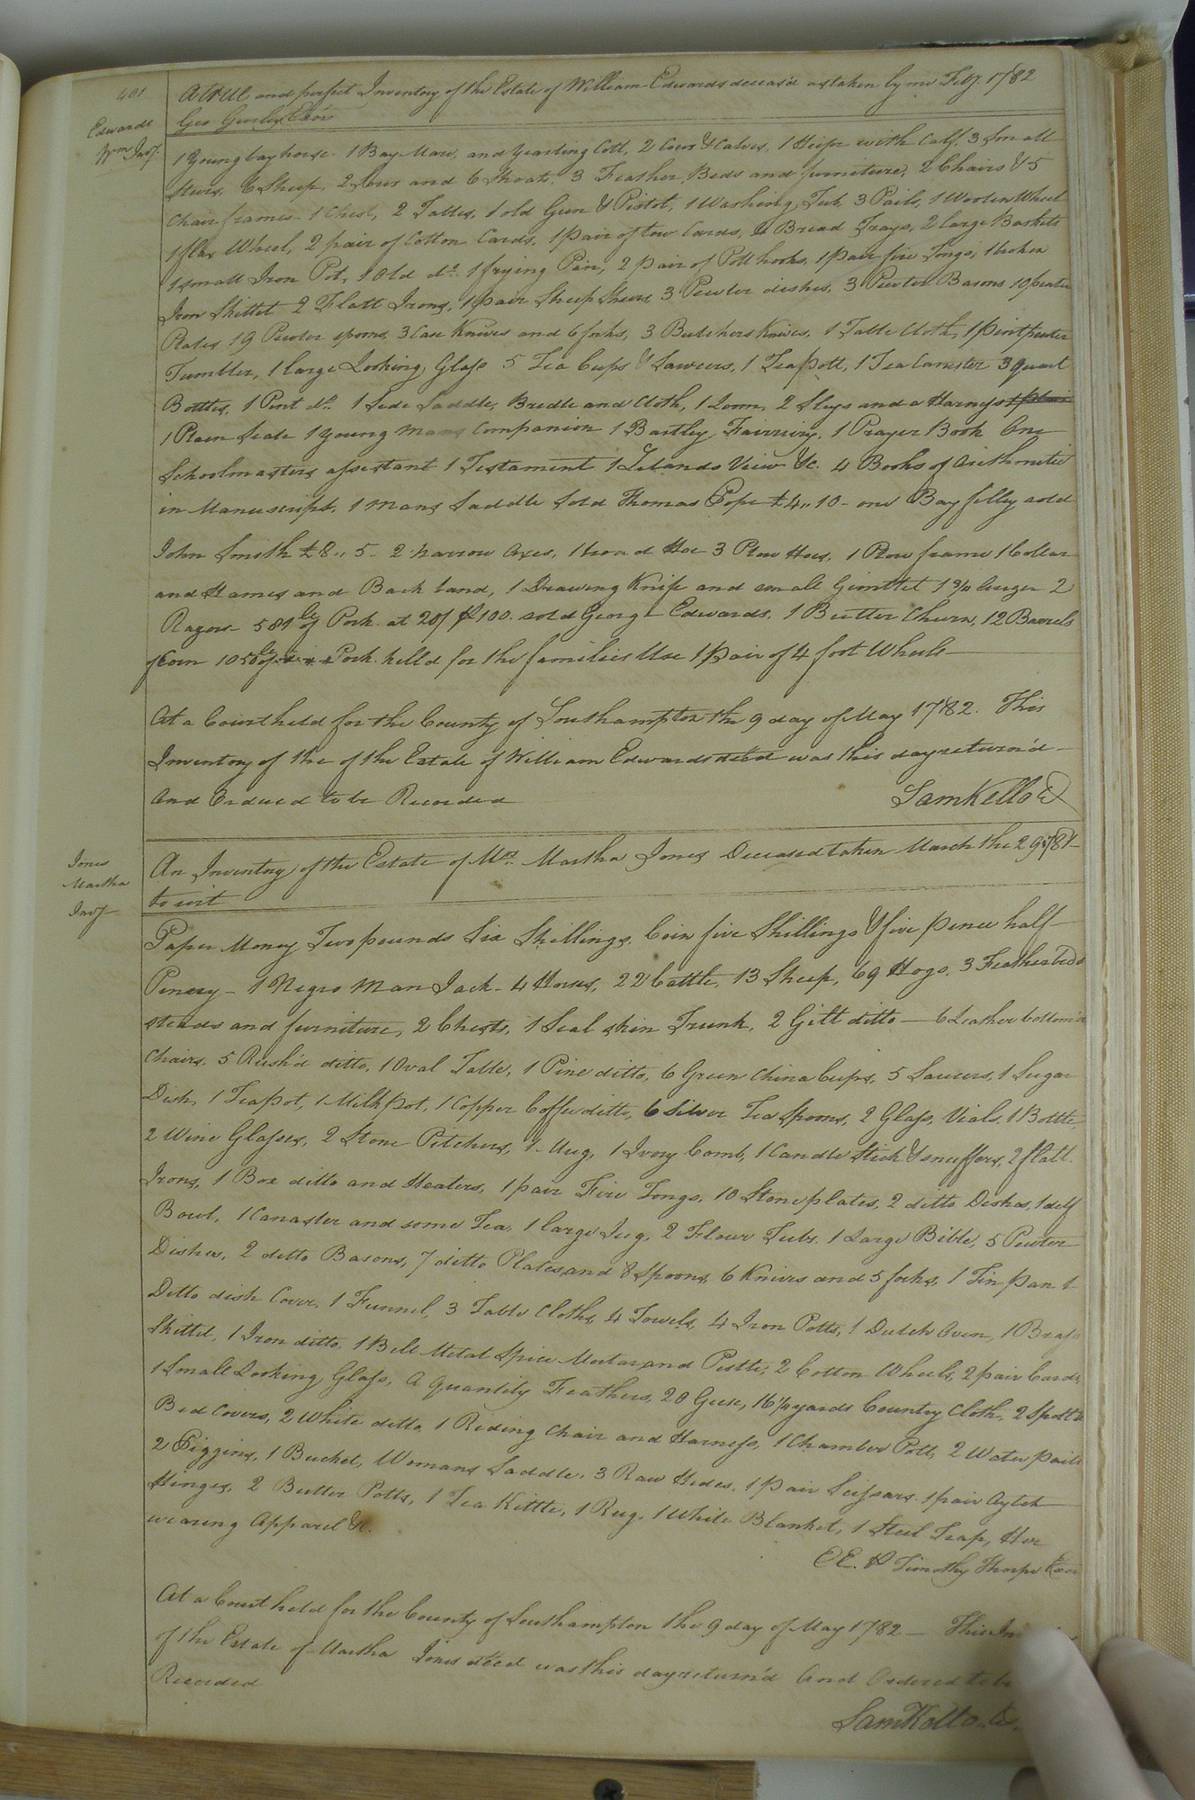 401
Edwards
Wm Invy
A true and perfect Inventory of the Estate of William Edwards deceas'd as taken by me Feby 1782
Geo Gurley Exor
1 Young bay horse 1 Bay Mare, and Yearling Colt, 2 Cows & Calves, 1 Heifer with Calf, 3 Small
Steers, 6 Sheep, 2 Sows and 6 Shoats, 3 Feather Beds and furniture, 2 Chairs & 5
Chair frames 1 Chest, 2 Tables, 1 old Gun & Pistol, 1 Washing Tub, 3 Pails, 1 Woolen Wheel
1 flax Wheel, 2 pair of Cotton Cards, 1 pair of tow Cards, 4 Bread Trays, 2 large Baskets
1 small Iron Pot, 1 Old do. 1 frying Pan, 2 pair of Pott hooks, 1 pair fire Tongs, 1 broken
Iron Skillet 2 Flatt Irons, 1 pair Sheep Shears 3 Pewter dishes, 3 Pewter Basons 10 pewter
Plates 19 Pewter spoons, 3 Case Knives and 6 forks, 3 Butchers Knives, 1 Table Cloth, 1 pint pewter
Tumbler, 1 large Looking Glass 5 Tea Cups & Sawcers, 1 Teapott, 1 Tea Canester 3 quart
Bottles, 1 Pint do. 1 Side Saddle, Bredle and Cloth, 1 Loom, 2 Slays and a Harness
1 Plain Scale 1 young Mans Companion 1 Bartley Fairning, 1 Prayer Book One
Schoolmasters assestant 1 Testament 1 Lelands View &c. 4 Books of Arithmetic
in Manuscript, 1 Mans Saddle Sold Thomas Pope £4.. 10 - one Bay filly sold
John Smith £8.. 5 - 2 Narrow Axes, 1 broad Hoe 3 Plow Hoes, 1 Plow frame 1 Collar
and Hames and Back band, 1 Drawing Knife and small Gimblet 1 3/4 Auger 2
Razors 581 lb of Pork at 20/ ⅌ 100. sold George Edwards, 1 Butter Churn, 12 Barrels
of Corn 1050 lb of Pork kill'd for the families Use 1 pair of 4 foot Wheels
At a Court held for the County of Southampton the 9 day of May 1782. This
Inventory of the of the Estate of William Edwards decd was this day return'd
And Ordered to be Recorded
Sam Kello Cl
Jones
Martha
Invy
An Inventory of the Estate of Mrs. Martha Jones Deceased taken March the 29 1781
to wit
Paper Money Two pounds Six Shillings, Coin five Shillings & five pence half
Penny - 1 Negro Man Jack - 4 Horses, 22 Cattle, 13 Sheep, 69 Hogs, 3 Featherbeds
steads and furniture, 2 Chests, 1 Seal skin Trunk, 2 Gilt ditto - 6 Leather bottom'd
Chairs, 5 Rush'd ditto, 1 Oval Table, 1 Pine ditto, 6 Green China Cups, 5 Saucers, 1 Sugar
Dish, 1 Teapot, 1 Milk pot, 1 Copper Coffee ditto, 6 Silver Tea Spoons, 2 Glass Vials, 1 Bottle
2 Wine Glasses, 2 Stone Pitchers, 1 Mug, 1 Ivory Comb, 1 Candle Stick & snuffers, 2 flatt
Irons, 1 Box ditto and Heaters, 1 pair Fire Tongs, 10 Stone plates, 2 ditto Dishes, 1 delf
Bowl, 1 Canaster and some Tea, 1 large Jug, 2 Flower Tubs, 1 Large Bible, 5 Pewter
Dishes, 2 ditto Basons, 7 ditto Plates and 8 Spoons, 6 Knives and 5 forks, 1 Tin pan 1
Ditto dish Cover, 1 Funnel, 3 Table Cloths, 4 Towels, 4 Iron Potts, 1 Dutch Oven, 1 Brass
Skittel, 1 Iron ditto, 1 Bell Metal Spice Mortar and Pestle, 2 Cotton Wheels, 2 pair Cards
1 Small Looking Glass, A Quantity Feathers, 20 Geese, 16 1/4 yards Country Cloth, 2 Spott'd
Bed Covers, 2 White ditto, 1 Riding Chair and Harness, 1 Chamber Pott, 2 Water pails
2 Piggins, 1 Bucket, Womans Saddle, 3 Raw Hides, 1 pair Scissars, 1 pair
Hinges, 2 Butter Potts, 1 Tea Kittle, 1 Rug, 1 White Blanket, 1 Steel Trap, Her
wearing Apparel &c.
E.E. ⅌ Timothy Thorpe Exor
At a Court held for the County of Southampton the 9 day of May 1782 - This
of the Estate of Martha Jones decd was this day return'd And Ordered to be
Recorded
Sam Kello Cl.